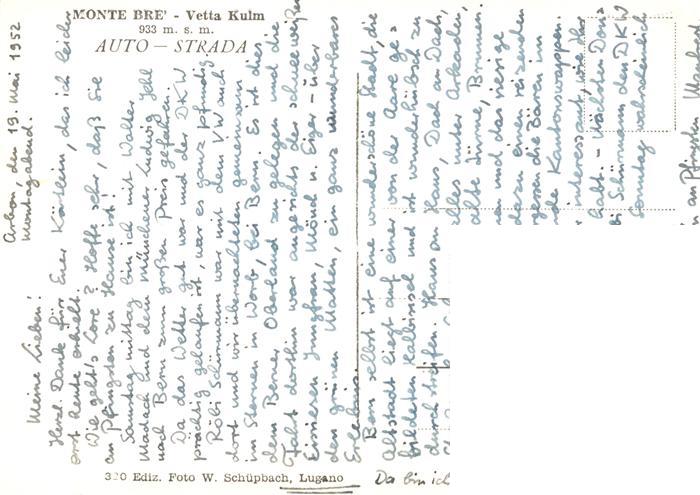 MONTE BRE' - Vetta Kulm
933 m. s. m.
AUTO — STRADA
Arbon den 19. Mai 1952
Montagabend.
Meine Lieben!
Herzl. Dank für Euer Kärtlein, das ich leider
erst heute erhielt.
Wie geht's Lore? Hoffe sehr, daß Sie
an Pfingsten zu Hause ist!
Samstag mittag bin ich mit Walter
Madach und dem Münchener Ludwig
nach Bern zum großen Preis gefahren.
Da das Wetter gut war und der DKW
prächtig gelaufen ist, war es ganz pfundig.
Röbi Schürmann war mit dem VW auch
dort und wir übernachteten gemeinsam
im Sternen in Worb, bei Bern. Es ist dies
dem Berner Oberland zu gelegen und die
Fahrt dorthin war angesichts der schneeweißen
Eisriesen Jungfrau, Mönch u. Eiger - über
den grünen Matten, ein ganz wunderbares
Erlebnis.
Bern selbst ist eine wunderschöne Stadt, die
Altstadt liegt auf einer von der Aare ge-
bildeten Halbinsel und ist wunderhübsch zu
durchstreifen. Haus an Haus, Dach an Dach,
alles unter Arkaden,
alte Türme, Brunnen
en und das riesige
dazu einen reizenden
die Bären im
de Kantonswappen.
interessant, wie Ihr
habt. - Nächsten Don-
bei Schürmann den DKW
Sonntag wahrscheinlich
an Pfingsten
Da bin ich
320 Ediz. Foto W. Schüpbach, Lugano